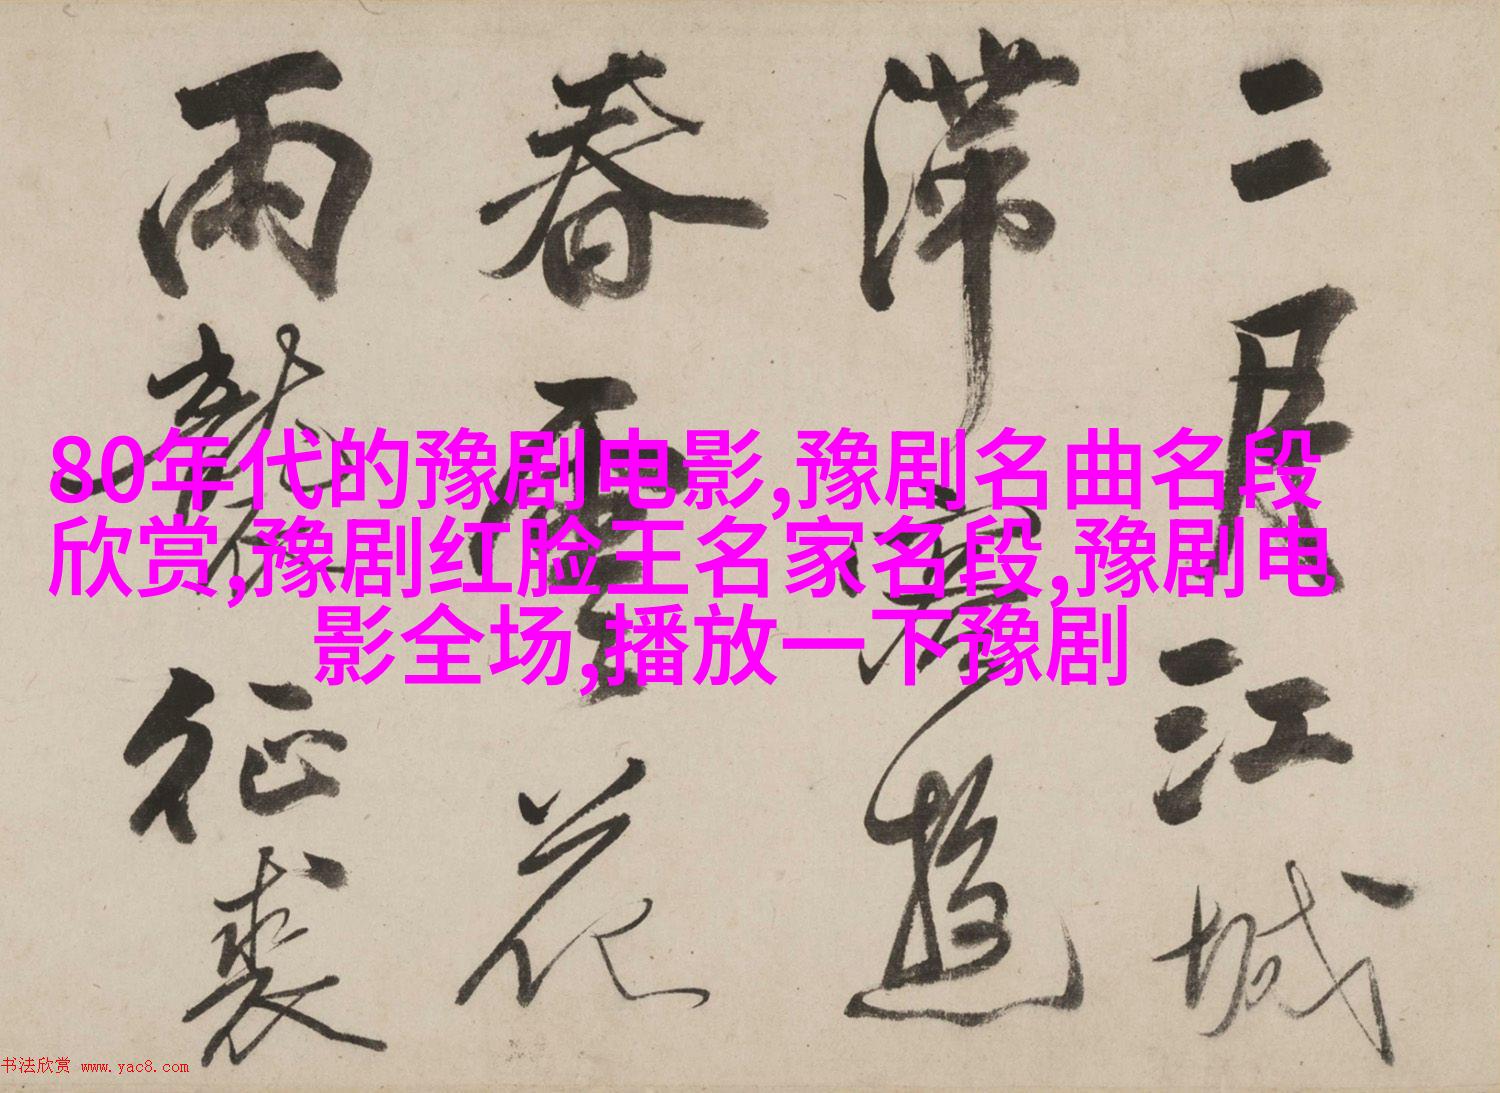 80年代的豫剧电影,豫剧名曲名段
欣赏,豫剧红脸王名家名段,豫剧电
影全场,播放一下豫剧
二月江城
滞
遊
春雪花
雨
征裘
书法欣赏 www.yac8.com